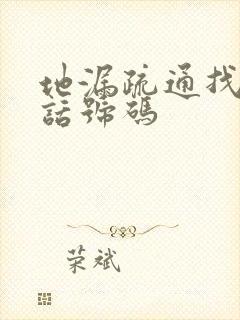 地漏疏通找
話號碼
荣斌